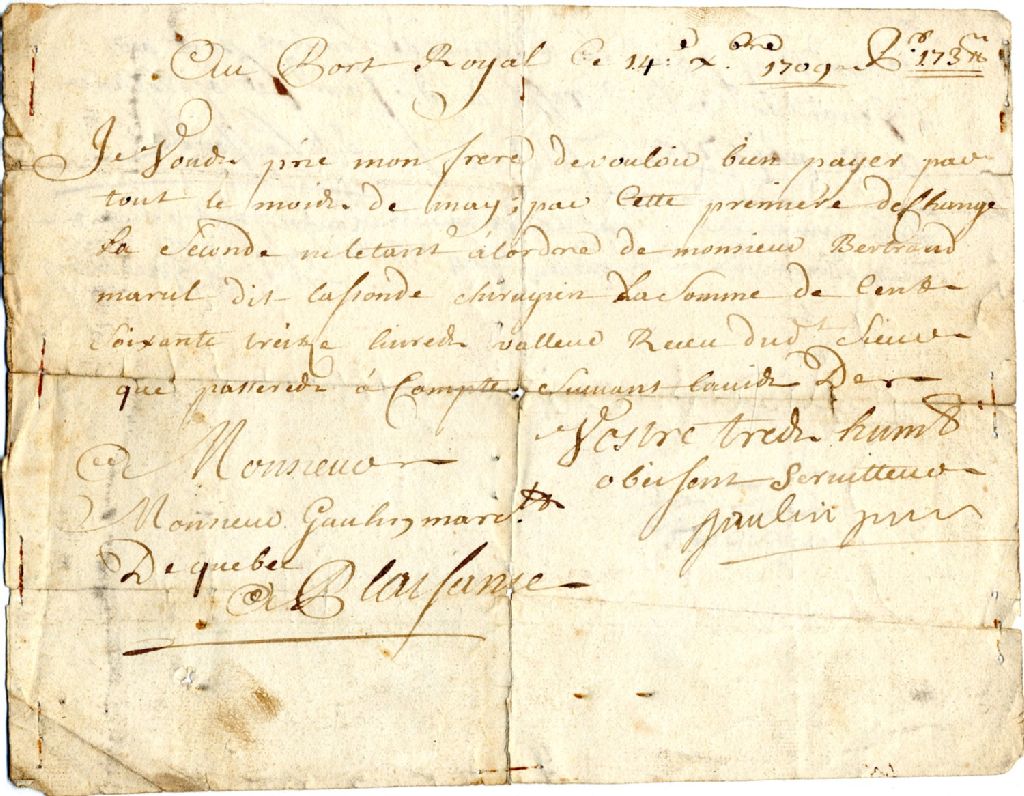 Au Port Royal ce 14.e x.bre 1709 173
Je Vous prie mon frere de vouloir bien payer par
tout le mois de may, par Cette premiere de Change
La Seconde ne letant a lordre de monsieur Bertrand
marul dit lassonde chirugien La Somme de Cent
Soixante treize livres valleur Receu dud.t Sieur
que passeres à Compte suivant lavis De
Vostre tres humb
obeisent Serviteur
gaulin
A Monsieur
Monsieur Gaulin, marc.d
De quebec
A Plaisance